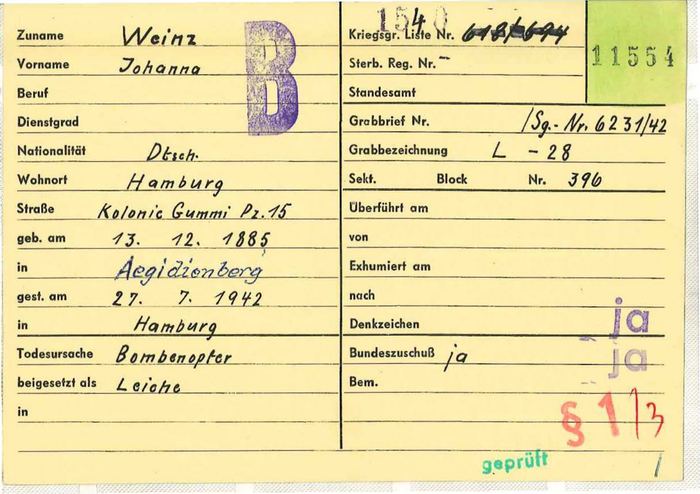 Zuname Weinz
Vorname Johanna
Beruf
Dienstgrad
Nationalität Dtsch.
Wohnort Hamburg
Straße Kolonie Gummi Pz. 15
geb. am 13. 12. 1885
in Aegidienberg
gest. am 27. 7. 1942
in Hamburg
Todesursache Bombenopfer
beigesetzt als Leiche
in
B
1540
Kriegsgr. Liste Nr. 618/694
Sterb. Reg. Nr. -
Standesamt
11554
Grabbrief Nr. /Sg.-Nr. 6231/42
Grabbezeichnung L - 28
Sekt. Block Nr. 396
Überführt am
von
Exhumiert am
nach
Denkzeichen ja
Bundeszuschuß ja ja
Bem.
§ 1/3
geprüft